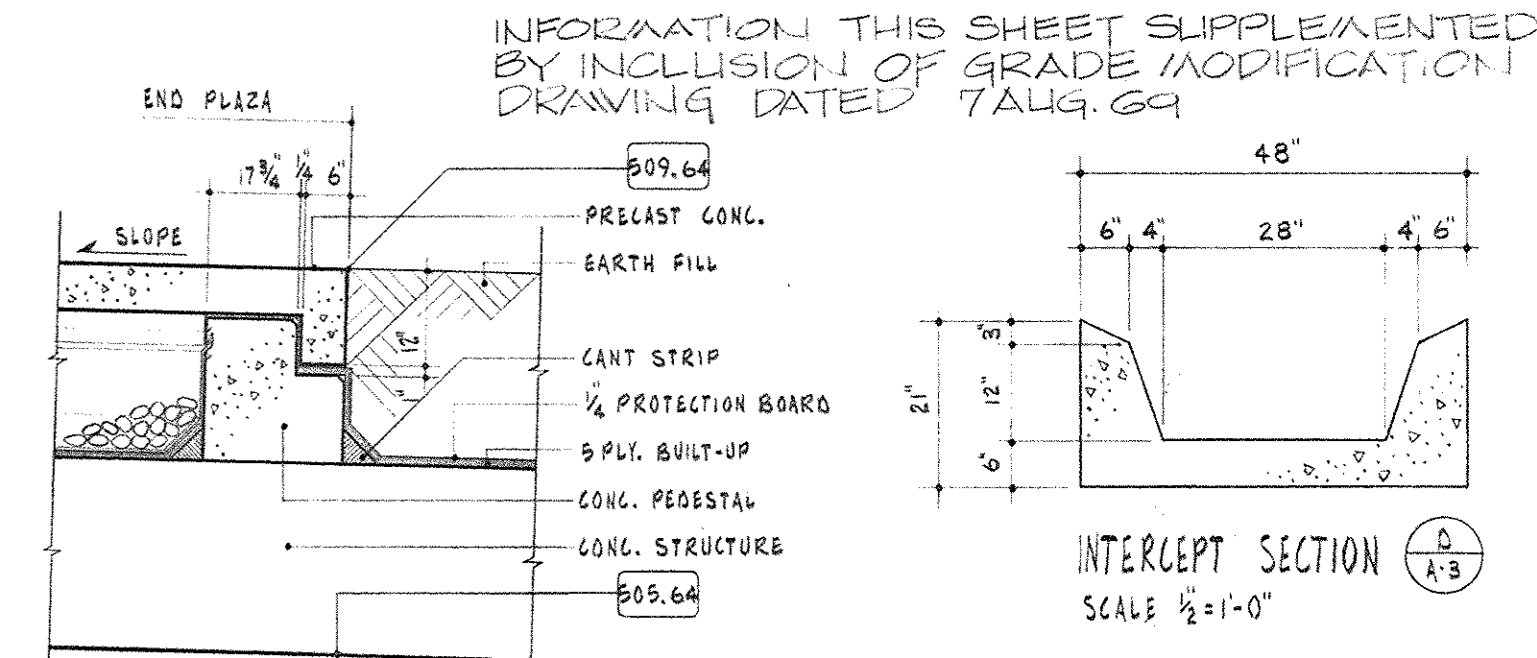 INFORMATION THIS SHEET SUPPLEMENTED
BY INCLUSION OF GRADE MODIFICATION
DRAWING DATED 7 AUG. 69
END PLAZA
17 3/4" 1/4" 6"
509.64
PRECAST CONC.
SLOPE
EARTH FILL
12"
CANT STRIP
1"
1/4" PROTECTION BOARD
5 PLY. BUILT-UP
CONC. PEDESTAL
CONC. STRUCTURE
505.64
48"
6" 4" 28" 4" 6"
3"
21"
12"
6"
INTERCEPT SECTION
D
A-3
SCALE 1/2" = 1'-0"